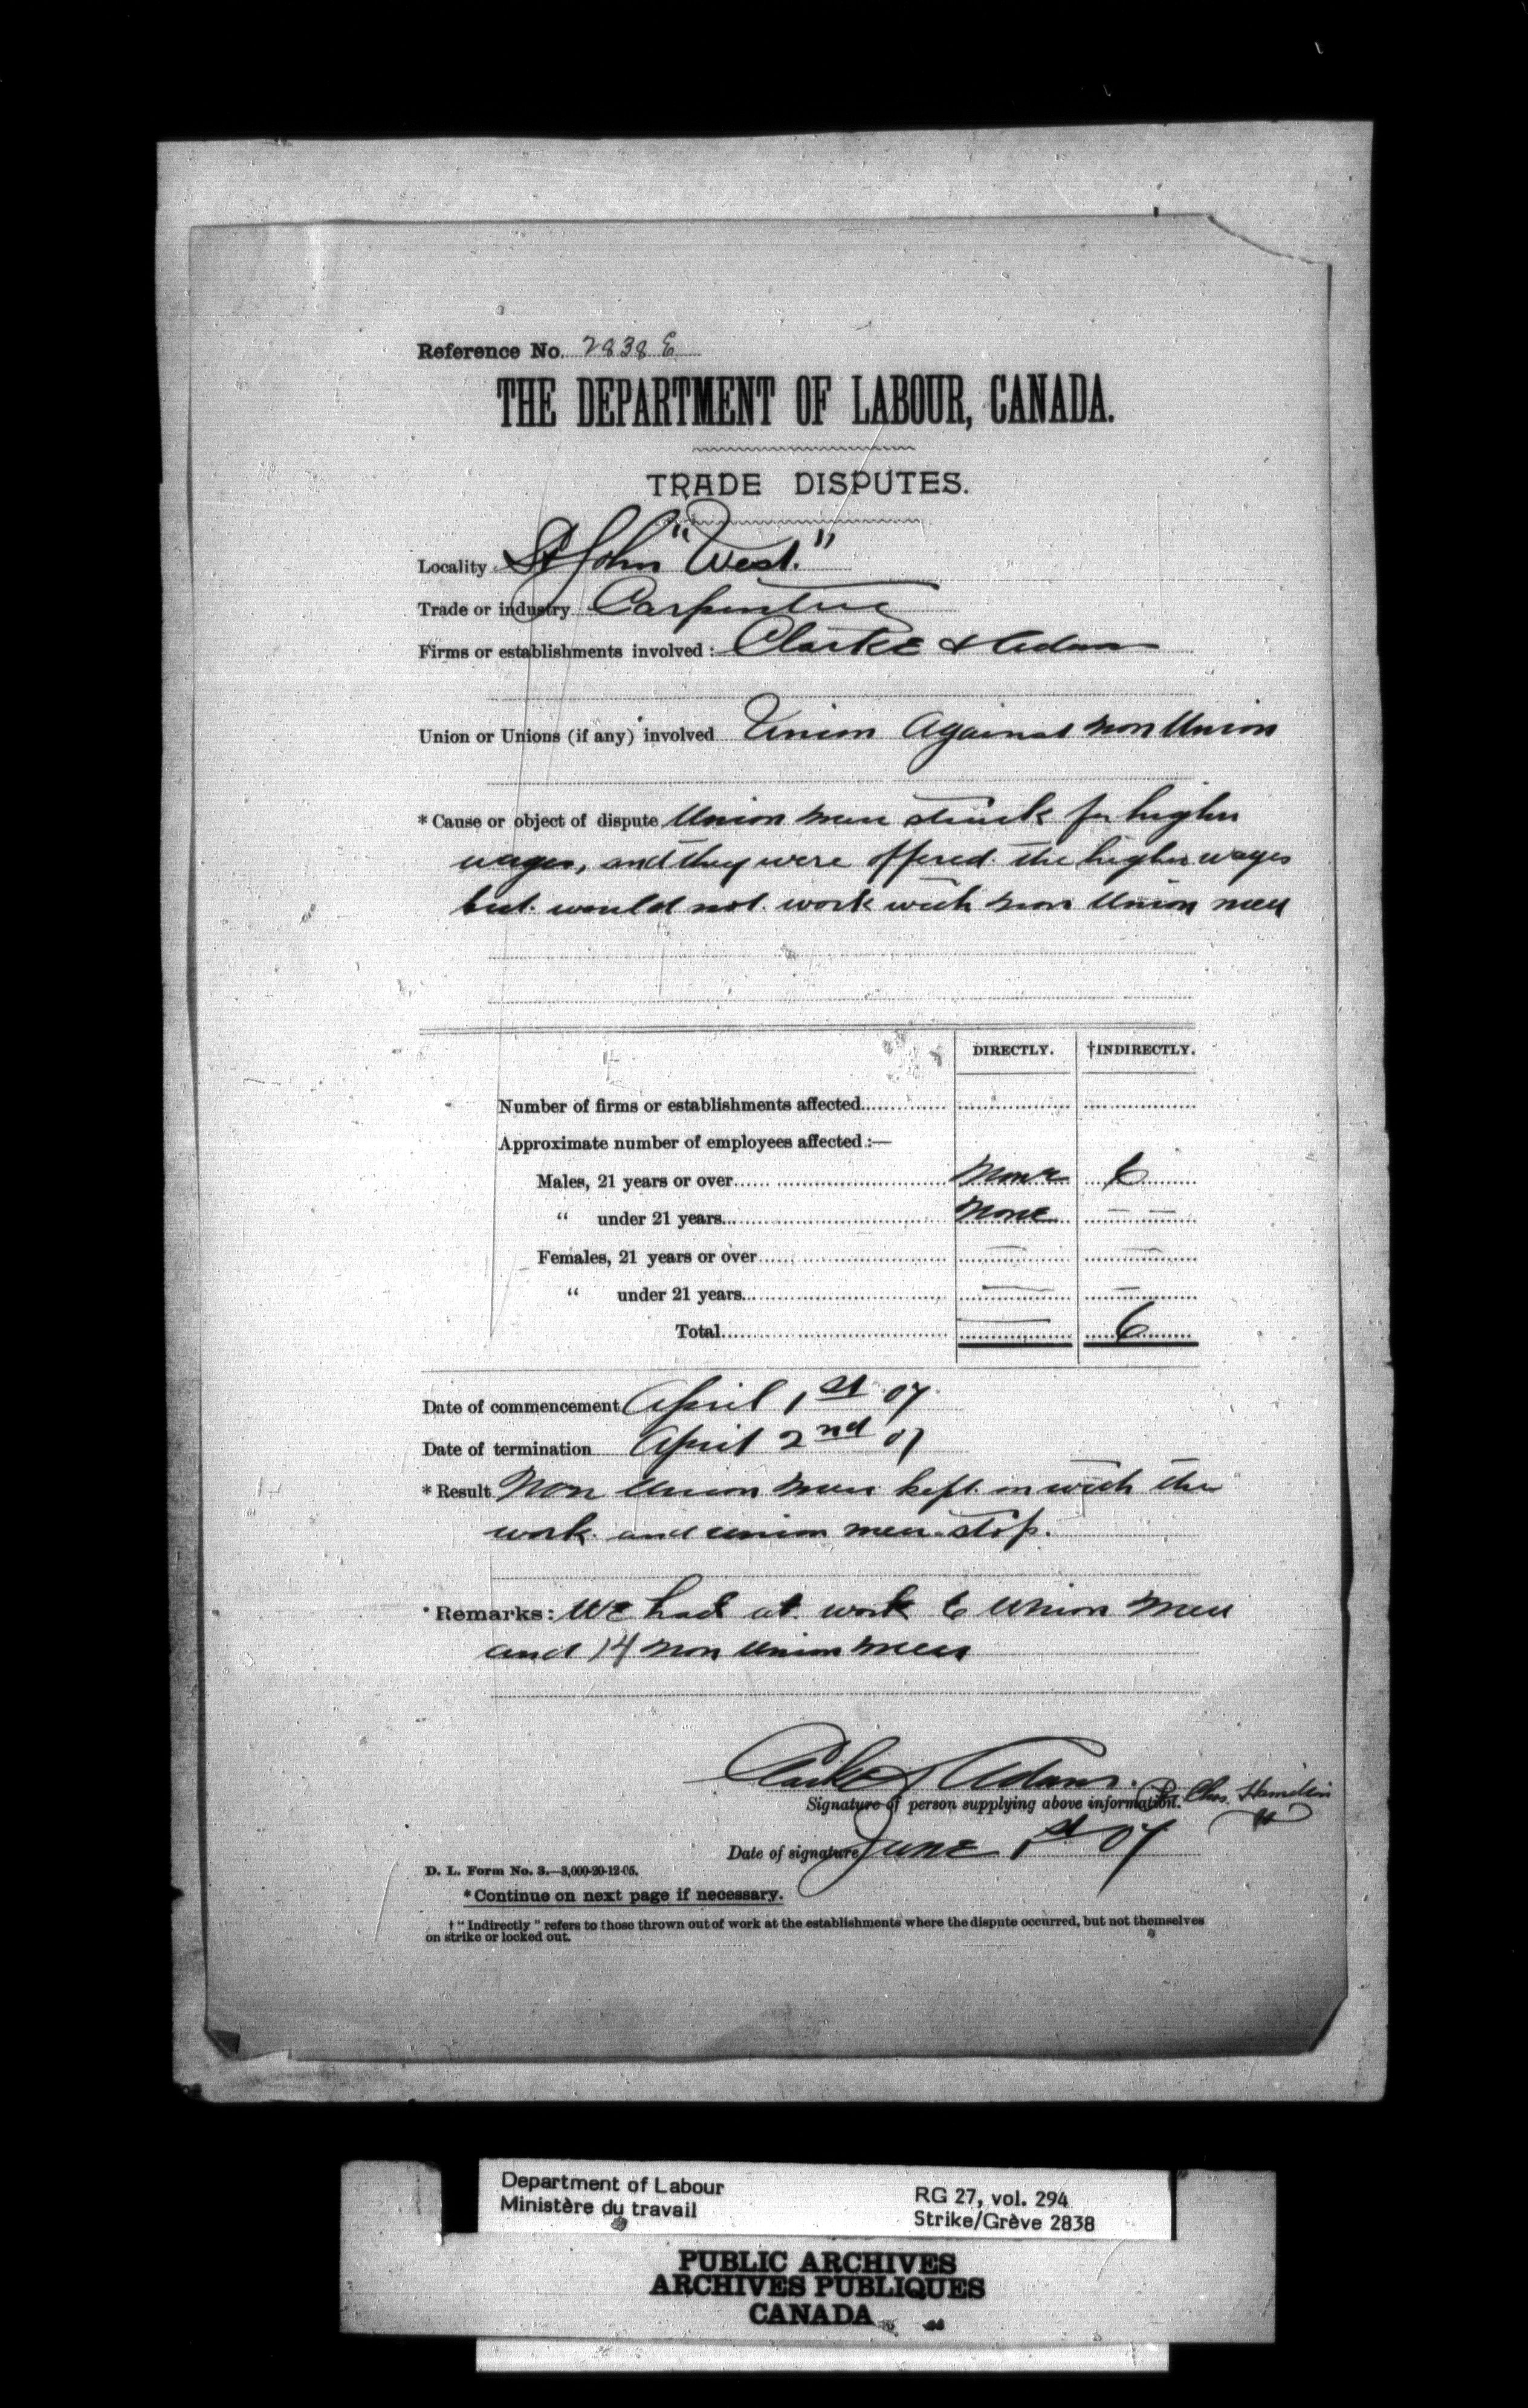 Reference No. 2838 E
THE DEPARTMENT OF LABOUR, CANADA.
TRADE DISPUTES.
Locality St John "West."
Trade or industry Carpentring
Firms or establishments involved: Clarke & Adams
Union or Unions (if any) involved Union Against non Union
* Cause or object of dispute Union men struck for higher
wages, and they were offered the higher wages
but would not work with non Union men
DIRECTLY. †INDIRECTLY.
Number of firms or establishments affected
Approximate number of employees affected:—
Males, 21 years or over None 6
" under 21 years None — —
Females, 21 years or over — —
" under 21 years — —
Total — 6
Date of commencement April 1st 07
Date of termination April 2nd 07
* Result Non Union men kept on with the
work and union men stop.
* Remarks: We had at work 6 Union men
and 14 non Union men
Clarke & Adams.
Signature of person supplying above information. Per Chas. Hamilin
Date of signature June 1st 07
D. L. Form No. 3.—3,000-20-12-05.
*Continue on next page if necessary.
† "Indirectly" refers to those thrown out of work at the establishments where the dispute occurred, but not themselves
on strike or locked out.
Department of Labour
Ministère du travail
RG 27, vol. 294
Strike/Grève 2838
PUBLIC ARCHIVES
ARCHIVES PUBLIQUES
CANADA